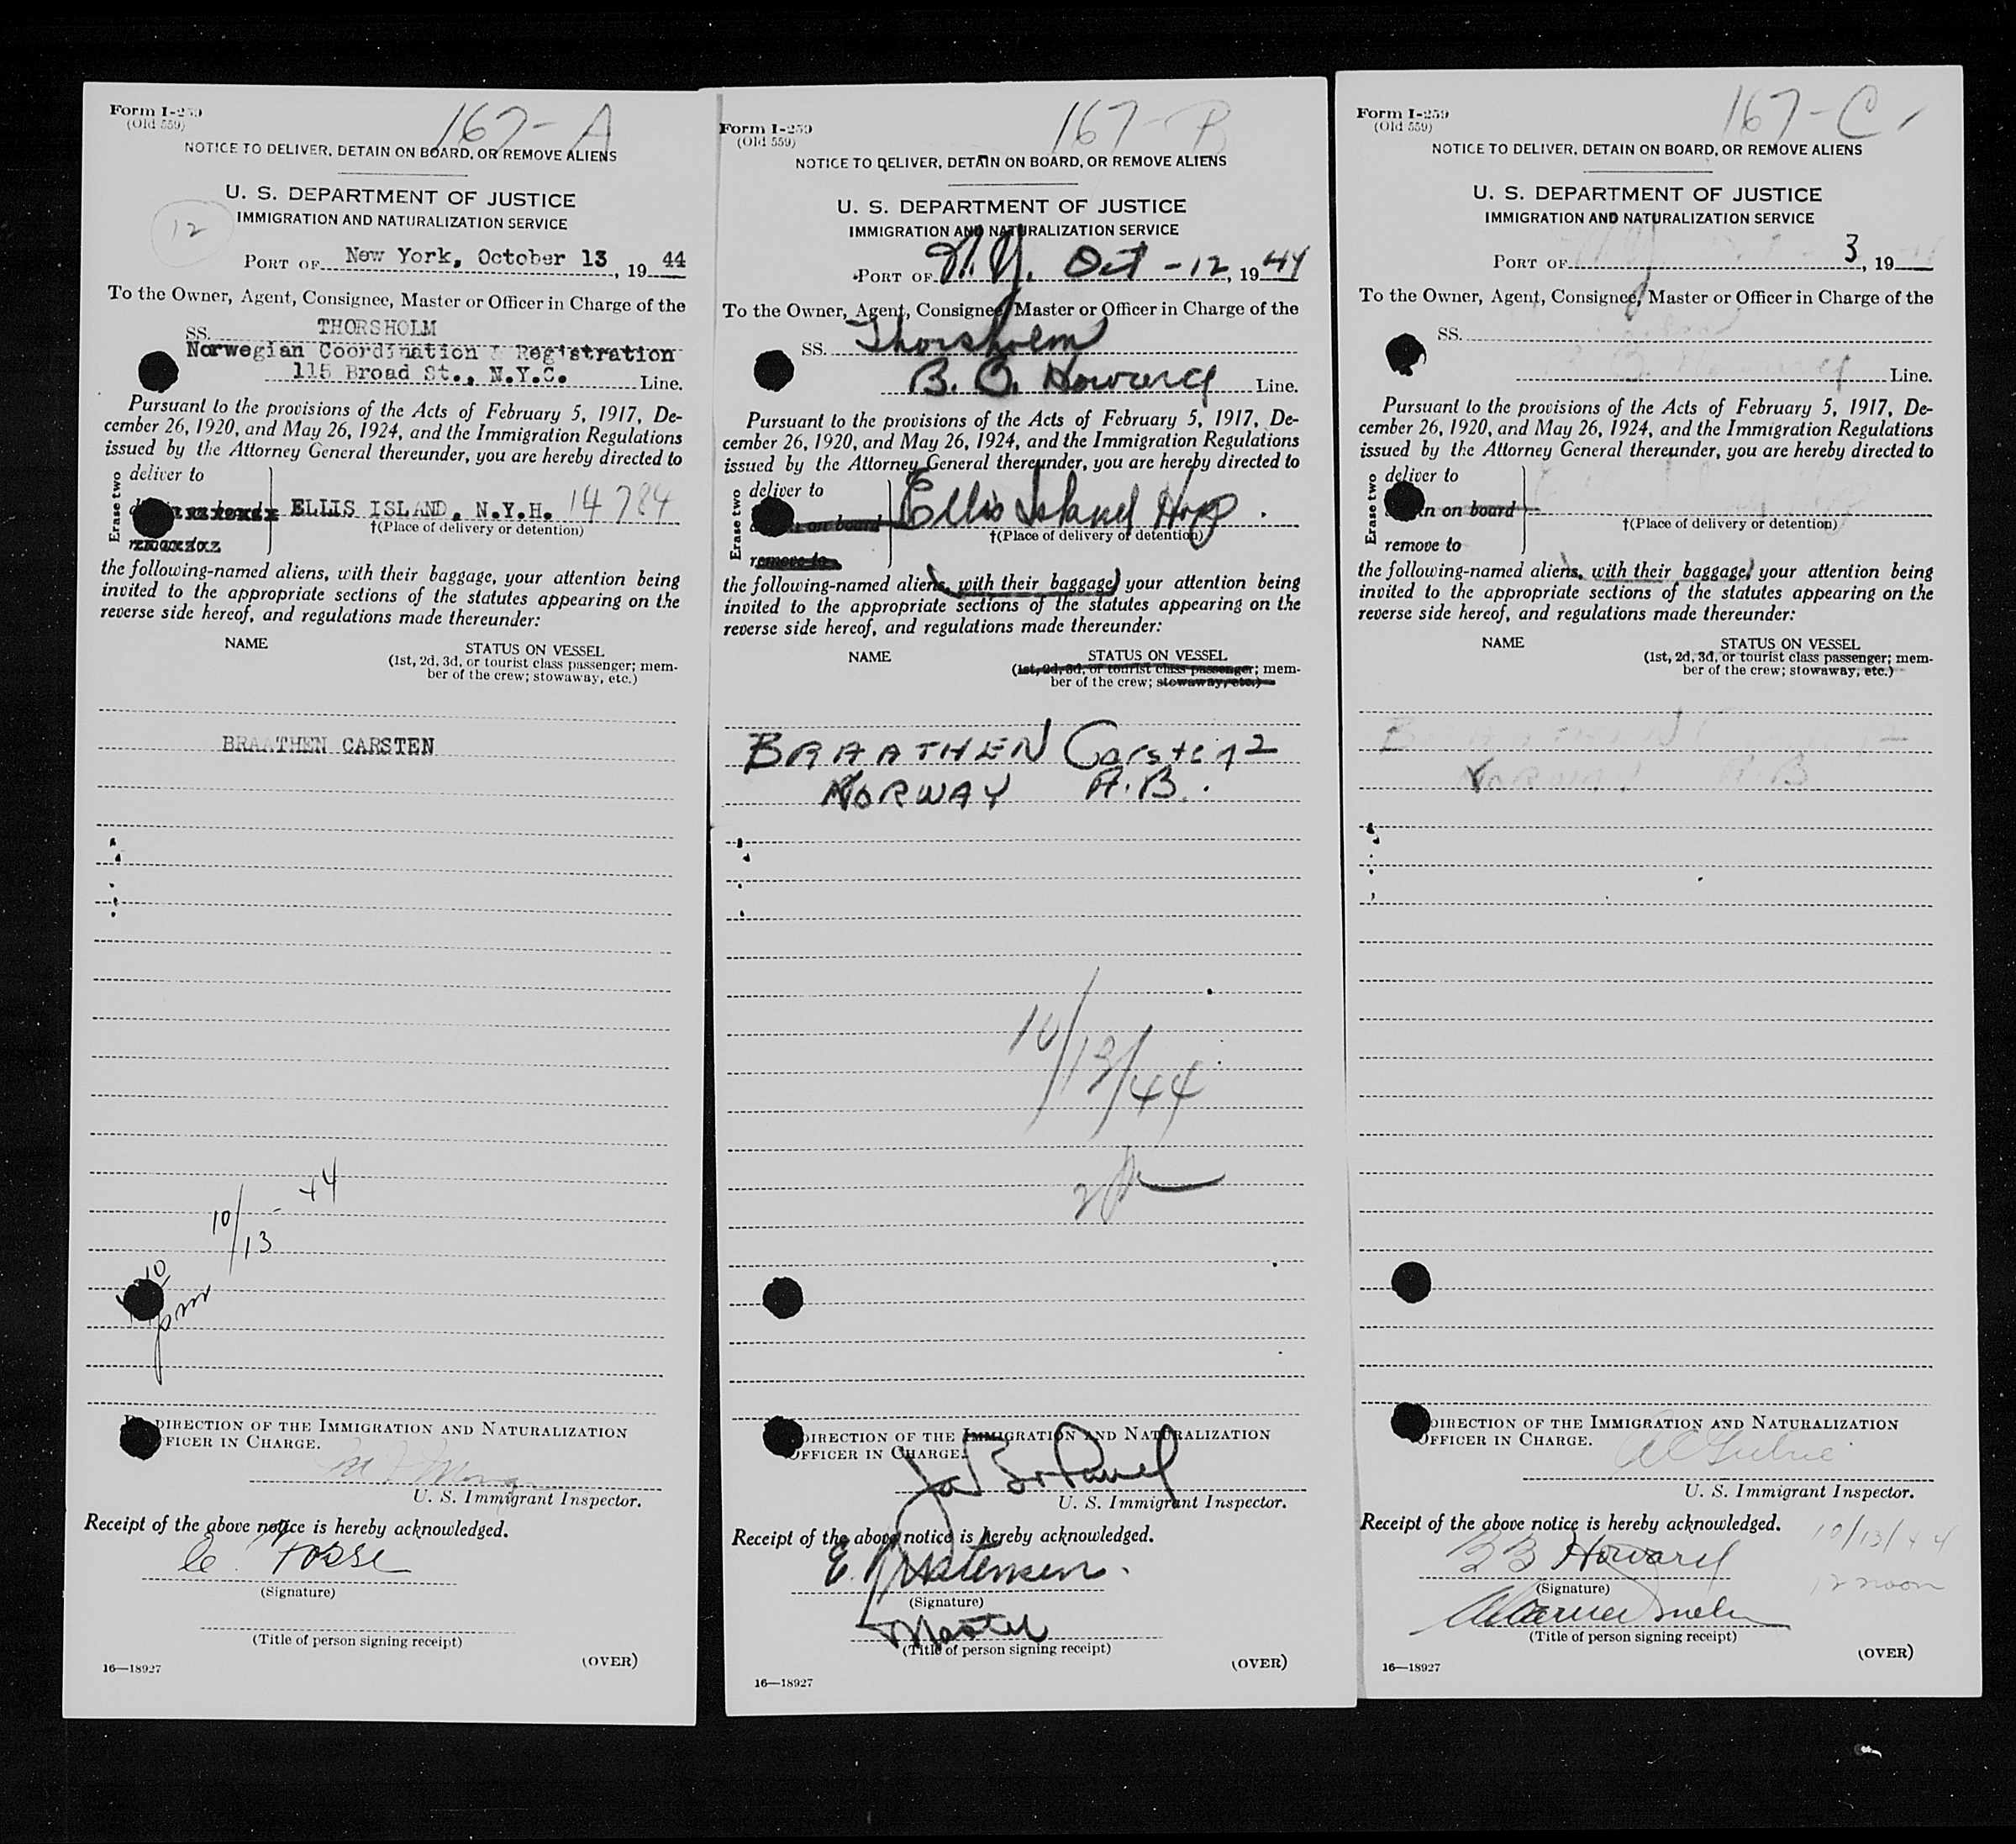 Form I-259
(Old 559)
167-A
NOTICE TO DELIVER, DETAIN ON BOARD, OR REMOVE ALIENS
U. S. DEPARTMENT OF JUSTICE
IMMIGRATION AND NATURALIZATION SERVICE
12
PORT OF New York, October 13, 19 44
To the Owner, Agent, Consignee, Master or Officer in Charge of the
SS. THORSHOLM
Norwegian Coordination & Registration
115 Broad St., N.Y.C. Line.
Pursuant to the provisions of the Acts of February 5, 1917, De-
cember 26, 1920, and May 26, 1924, and the Immigration Regulations
issued by the Attorney General thereunder, you are hereby directed to
Erase two
deliver to
ELLIS ISLAND, N.Y.H. 14784
†(Place of delivery or detention)
the following-named aliens, with their baggage, your attention being
invited to the appropriate sections of the statutes appearing on the
reverse side hereof, and regulations made thereunder:
NAME
STATUS ON VESSEL
(1st, 2d, 3d, or tourist class passenger; mem-
ber of the crew; stowaway, etc.)
BRAATHEN CARSTEN
10/13-44
10
pm
DIRECTION OF THE IMMIGRATION AND NATURALIZATION
FICER IN CHARGE.
U. S. Immigrant Inspector.
Receipt of the above notice is hereby acknowledged.
C. Fosse
(Signature)
(Title of person signing receipt)
16—18927
(OVER)
Form I-259
(Old 559)
167-B
NOTICE TO DELIVER, DETAIN ON BOARD, OR REMOVE ALIENS
U. S. DEPARTMENT OF JUSTICE
IMMIGRATION AND NATURALIZATION SERVICE
PORT OF N.Y. Oct-12, 19 44
To the Owner, Agent, Consignee, Master or Officer in Charge of the
SS. Thorsholm
B. B. Howard Line.
Pursuant to the provisions of the Acts of February 5, 1917, De-
cember 26, 1920, and May 26, 1924, and the Immigration Regulations
issued by the Attorney General thereunder, you are hereby directed to
Erase two
deliver to
on board
Ellis Island Hosp.
†(Place of delivery or detention)
remove to
the following-named aliens, with their baggage, your attention being
invited to the appropriate sections of the statutes appearing on the
reverse side hereof, and regulations made thereunder:
NAME
STATUS ON VESSEL
(1st, 2d, 3d, or tourist class passenger; mem-
ber of the crew; stowaway, etc.)
BRAATHEN Carsten 2
NORWAY A.B.
10/13/44
DIRECTION OF THE IMMIGRATION AND NATURALIZATION
OFFICER IN CHARGE.
U. S. Immigrant Inspector.
Receipt of the above notice is hereby acknowledged.
E. Kristensen.
(Signature)
Master
(Title of person signing receipt)
16—18927
(OVER)
Form I-259
(Old 559)
167-C
NOTICE TO DELIVER, DETAIN ON BOARD, OR REMOVE ALIENS
U. S. DEPARTMENT OF JUSTICE
IMMIGRATION AND NATURALIZATION SERVICE
PORT OF 3, 19
To the Owner, Agent, Consignee, Master or Officer in Charge of the
SS.
B. Howard Line.
Pursuant to the provisions of the Acts of February 5, 1917, De-
cember 26, 1920, and May 26, 1924, and the Immigration Regulations
issued by the Attorney General thereunder, you are hereby directed to
Erase two
deliver to
in on board
†(Place of delivery or detention)
remove to
the following-named aliens, with their baggage, your attention being
invited to the appropriate sections of the statutes appearing on the
reverse side hereof, and regulations made thereunder:
NAME
STATUS ON VESSEL
(1st, 2d, 3d, or tourist class passenger; mem-
ber of the crew; stowaway, etc.)
NORWAY A.B
DIRECTION OF THE IMMIGRATION AND NATURALIZATION
OFFICER IN CHARGE.
U. S. Immigrant Inspector.
Receipt of the above notice is hereby acknowledged.
10/13/44
B B Howard
12 noon
(Signature)
(Title of person signing receipt)
16—18927
(OVER)